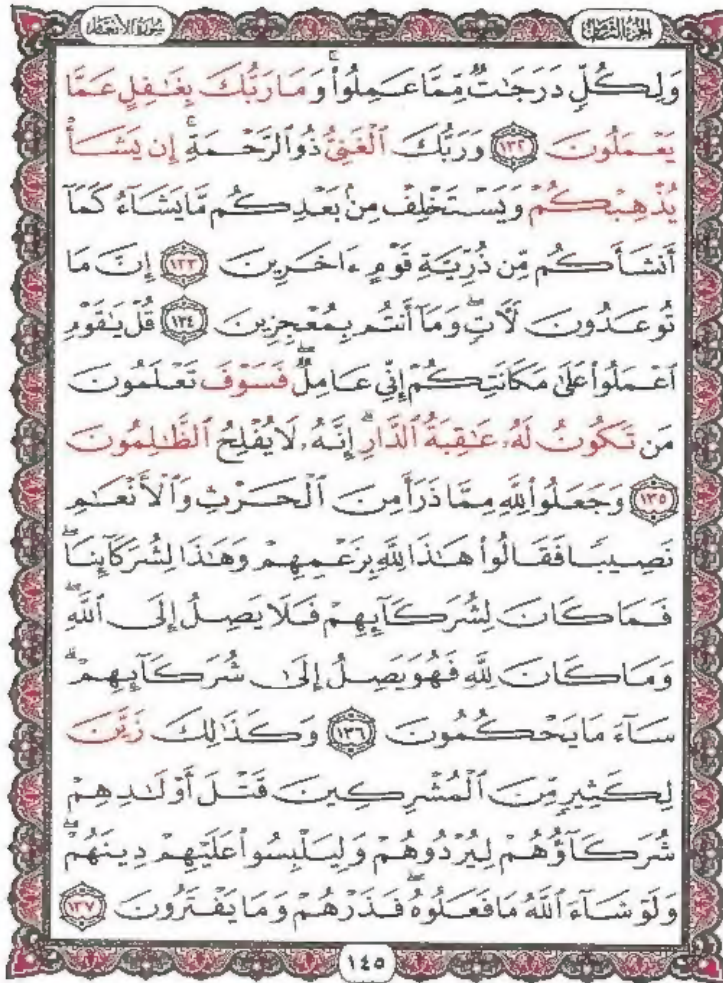 سُورَةُ الأنعَام
الجزء الثامن
وَلِكُلٍّ دَرَجَٰتٌ مِّمَّا عَمِلُوا۟ ۚ وَمَا رَبُّكَ بِغَٰفِلٍ عَمَّا
يَعْمَلُونَ ١٣٢ وَرَبُّكَ ٱلْغَنِىُّ ذُو ٱلرَّحْمَةِ ۚ إِن يَشَأْ
يُذْهِبْكُمْ وَيَسْتَخْلِفْ مِنۢ بَعْدِكُم مَّا يَشَآءُ كَمَآ
أَنشَأَكُم مِّن ذُرِّيَّةِ قَوْمٍ ءَاخَرِينَ ١٣٣ إِنَّ مَا
تُوعَدُونَ لَءَاتٍ ۖ وَمَآ أَنتُم بِمُعْجِزِينَ ١٣٤ قُلْ يَٰقَوْمِ
ٱعْمَلُوا۟ عَلَىٰ مَكَانَتِكُمْ إِنِّى عَامِلٌ ۖ فَسَوْفَ تَعْلَمُونَ
مَن تَكُونُ لَهُۥ عَٰقِبَةُ ٱلدَّارِ ۗ إِنَّهُۥ لَا يُفْلِحُ ٱلظَّٰلِمُونَ
١٣٥ وَجَعَلُوا۟ لِلَّهِ مِمَّا ذَرَأَ مِنَ ٱلْحَرْثِ وَٱلْأَنْعَٰمِ
نَصِيبًا فَقَالُوا۟ هَٰذَا لِلَّهِ بِزَعْمِهِمْ وَهَٰذَا لِشُرَكَآئِنَا ۖ
فَمَا كَانَ لِشُرَكَآئِهِمْ فَلَا يَصِلُ إِلَى ٱللَّهِ ۖ
وَمَا كَانَ لِلَّهِ فَهُوَ يَصِلُ إِلَىٰ شُرَكَآئِهِمْ ۗ
سَآءَ مَا يَحْكُمُونَ ١٣٦ وَكَذَٰلِكَ زَيَّنَ
لِكَثِيرٍ مِّنَ ٱلْمُشْرِكِينَ قَتْلَ أَوْلَٰدِهِمْ
شُرَكَآؤُهُمْ لِيُرْدُوهُمْ وَلِيَلْبِسُوا۟ عَلَيْهِمْ دِينَهُمْ ۖ
وَلَوْ شَآءَ ٱللَّهُ مَا فَعَلُوهُ ۖ فَذَرْهُمْ وَمَا يَفْتَرُونَ ١٣٧
١٤٥